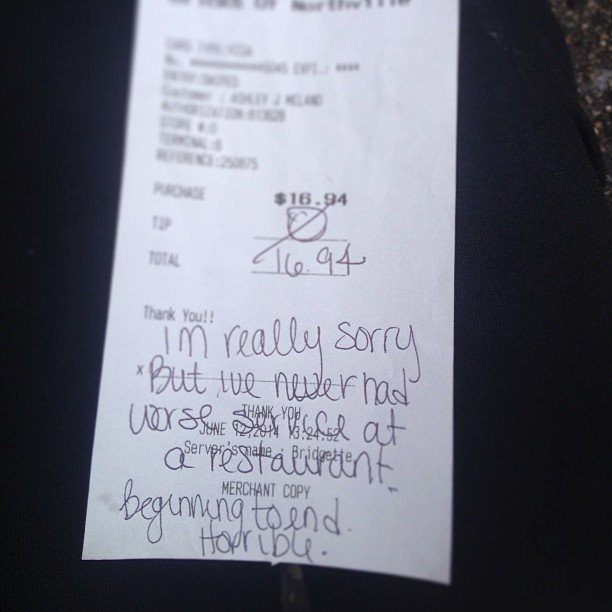 Northville
CARD TYPE:VISA
ENTRY:SWIPED
Customer : ASHLEY J MELAND
AUTHORIZATION:013028
STORE #:0
TERMINAL:6
REFERENCE:250875
PURCHASE $16.94
TIP
TOTAL 16.94
Thank You!!
im really sorry
x But ive never had
THANK YOU
worse service at
JUNE 12,2014 13:24:52
Server's name : Bridgette
a restaurant.
MERCHANT COPY
beginning to end.
Horrible.